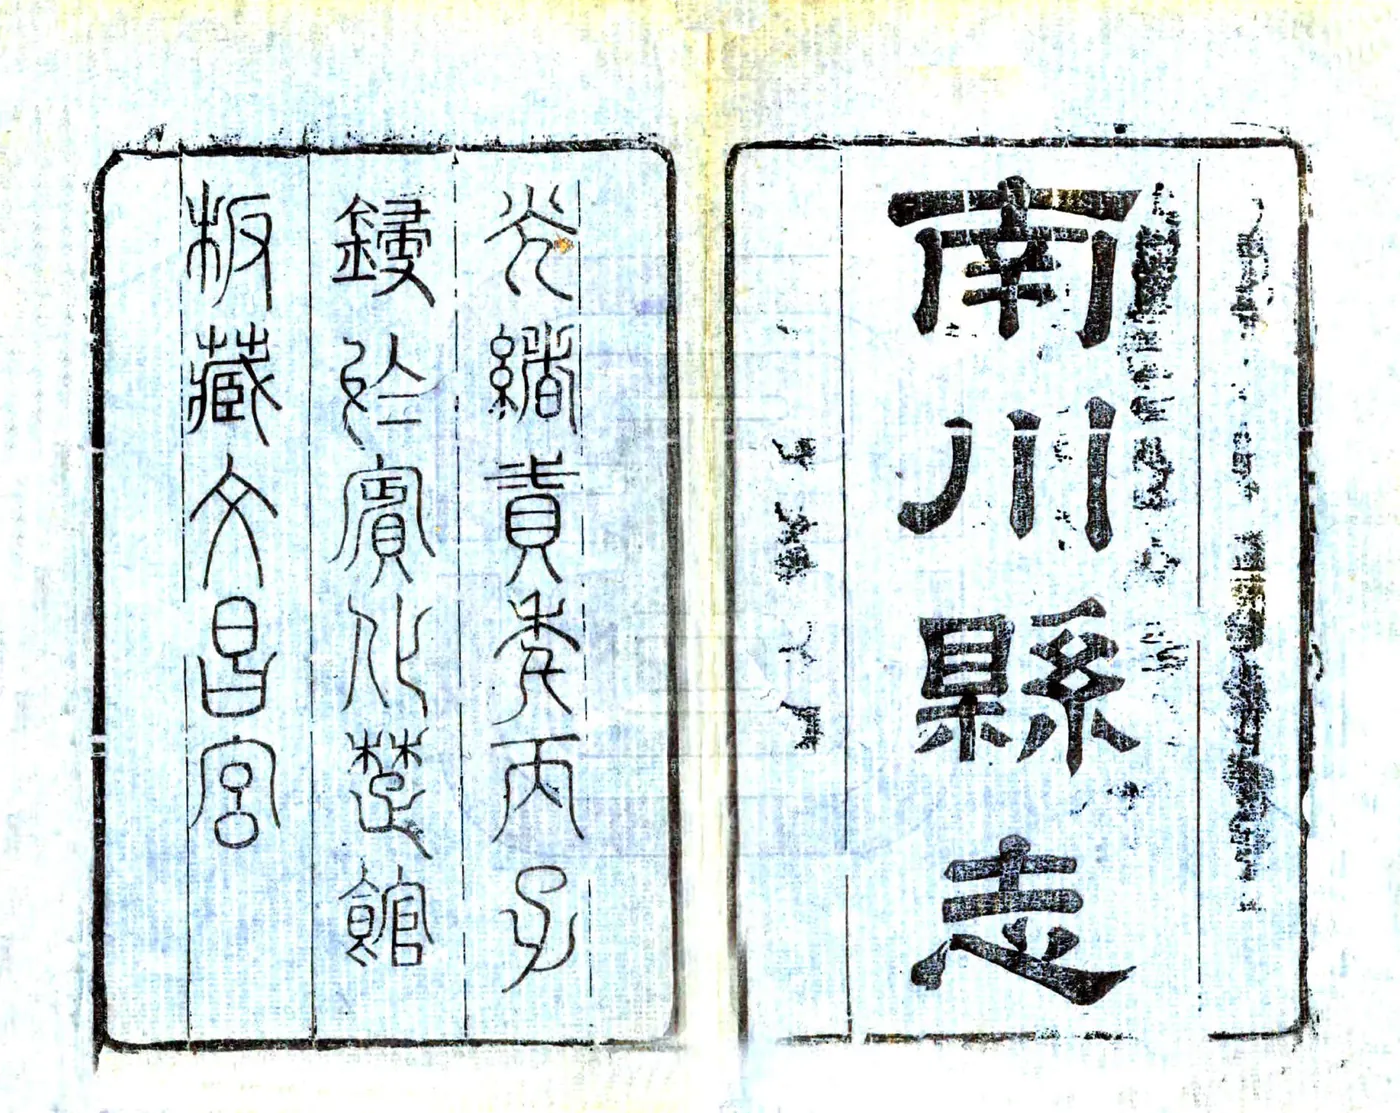 南川縣志
光緒貳年丙子
鋟於賓化楚館
板藏文昌宮